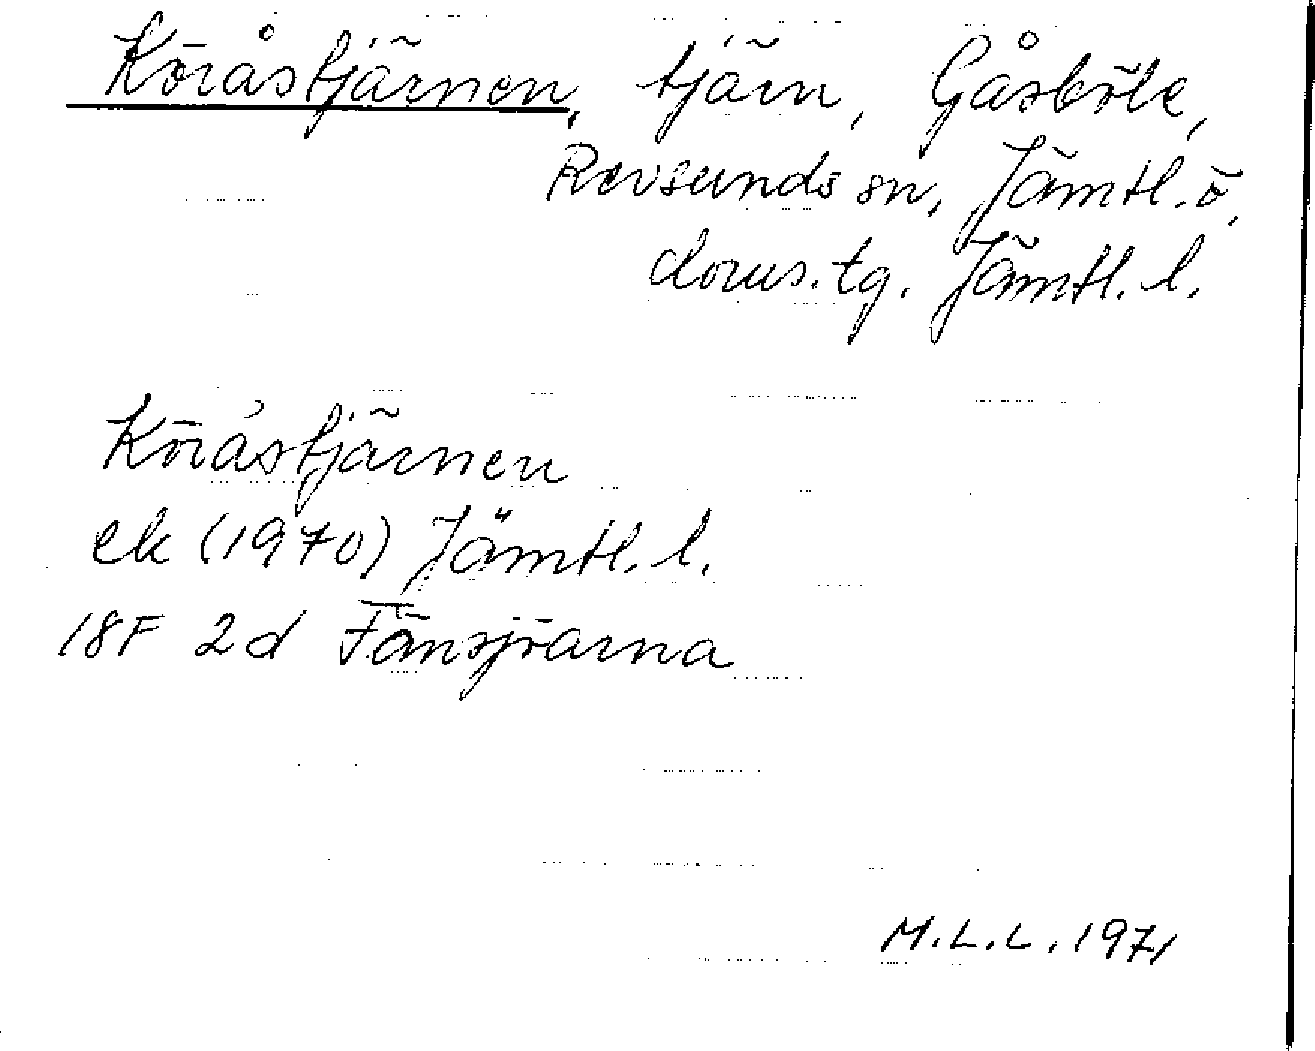 Köråstjärnen, tjärn, Gåsböle,
Revsunds sn, Jämtl. ö.
doms. tg. Jämtl. l.
Köråstjärnen
ek (1970) Jämtl. l.
18F 2d Fänsjöarna
M.L.L. 1971